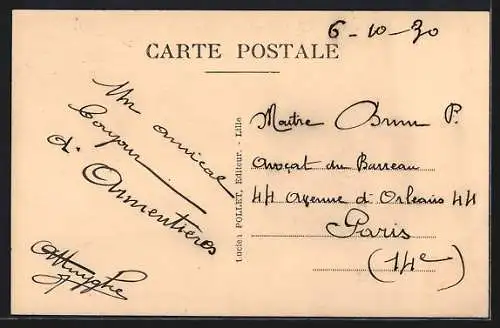 6-10-30
CARTE POSTALE
Un amical
bonjour
d'Armentières
Lucien POLLET, Editeur. - Lille
Maître Brun P.
Avocat du Barreau
44 Avenue d'Orléans 44
Paris
(14e)